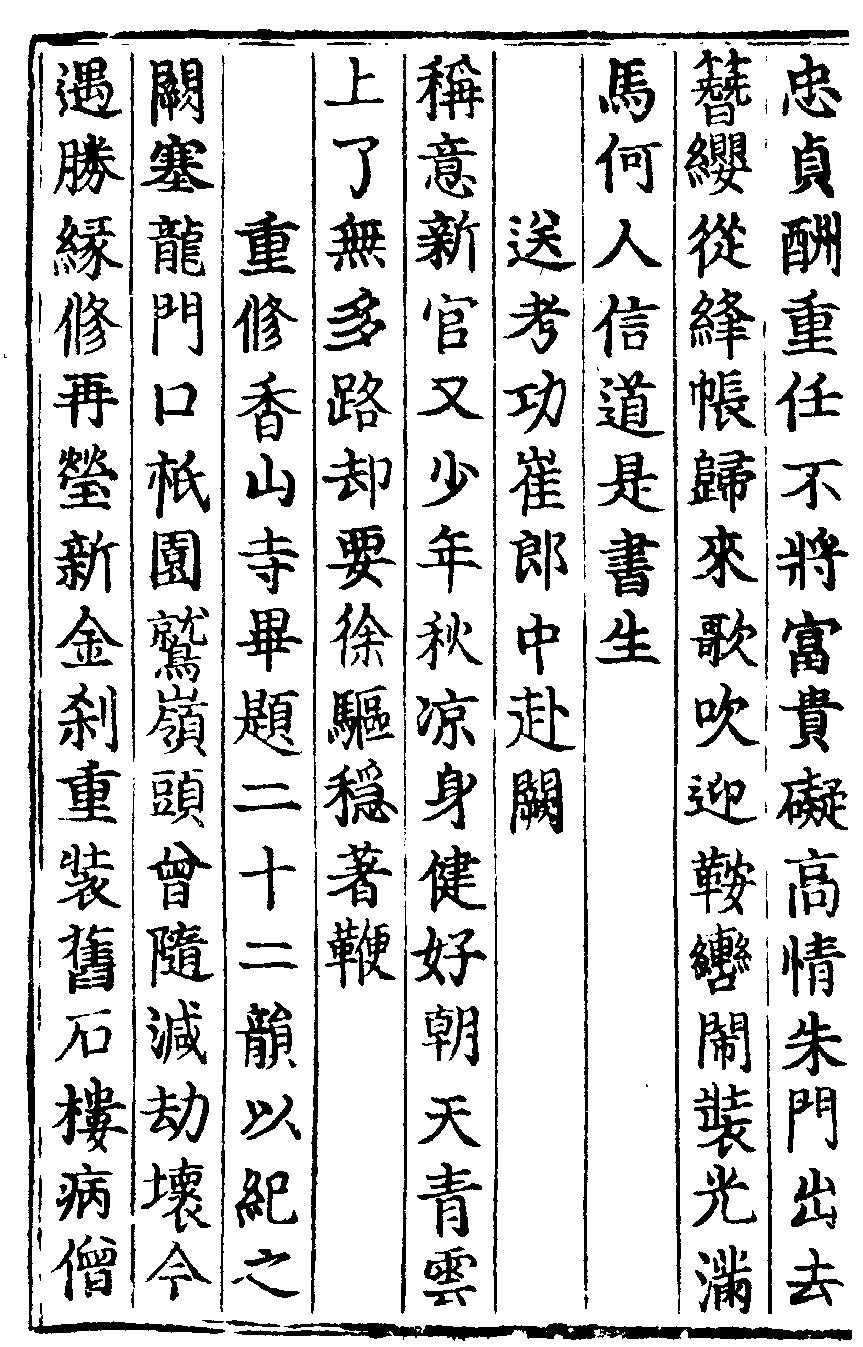 忠貞酬重任不將富貴礙高情朱門出去
簪纓從絳帳歸來歌吹迎鞍轡閙裝光滿
馬何人信道是書生
送考功崔郎中赴闕
稱意新官又少年秋凉身健好朝天青雲
上了無多路却要徐驅穩著鞭
重修香山寺畢題二十二韻以紀之
闕塞龍門口祇園鷲嶺頭曾隨減劫壞今
遇勝緣修再瑩新金刹重裝舊石樓病僧